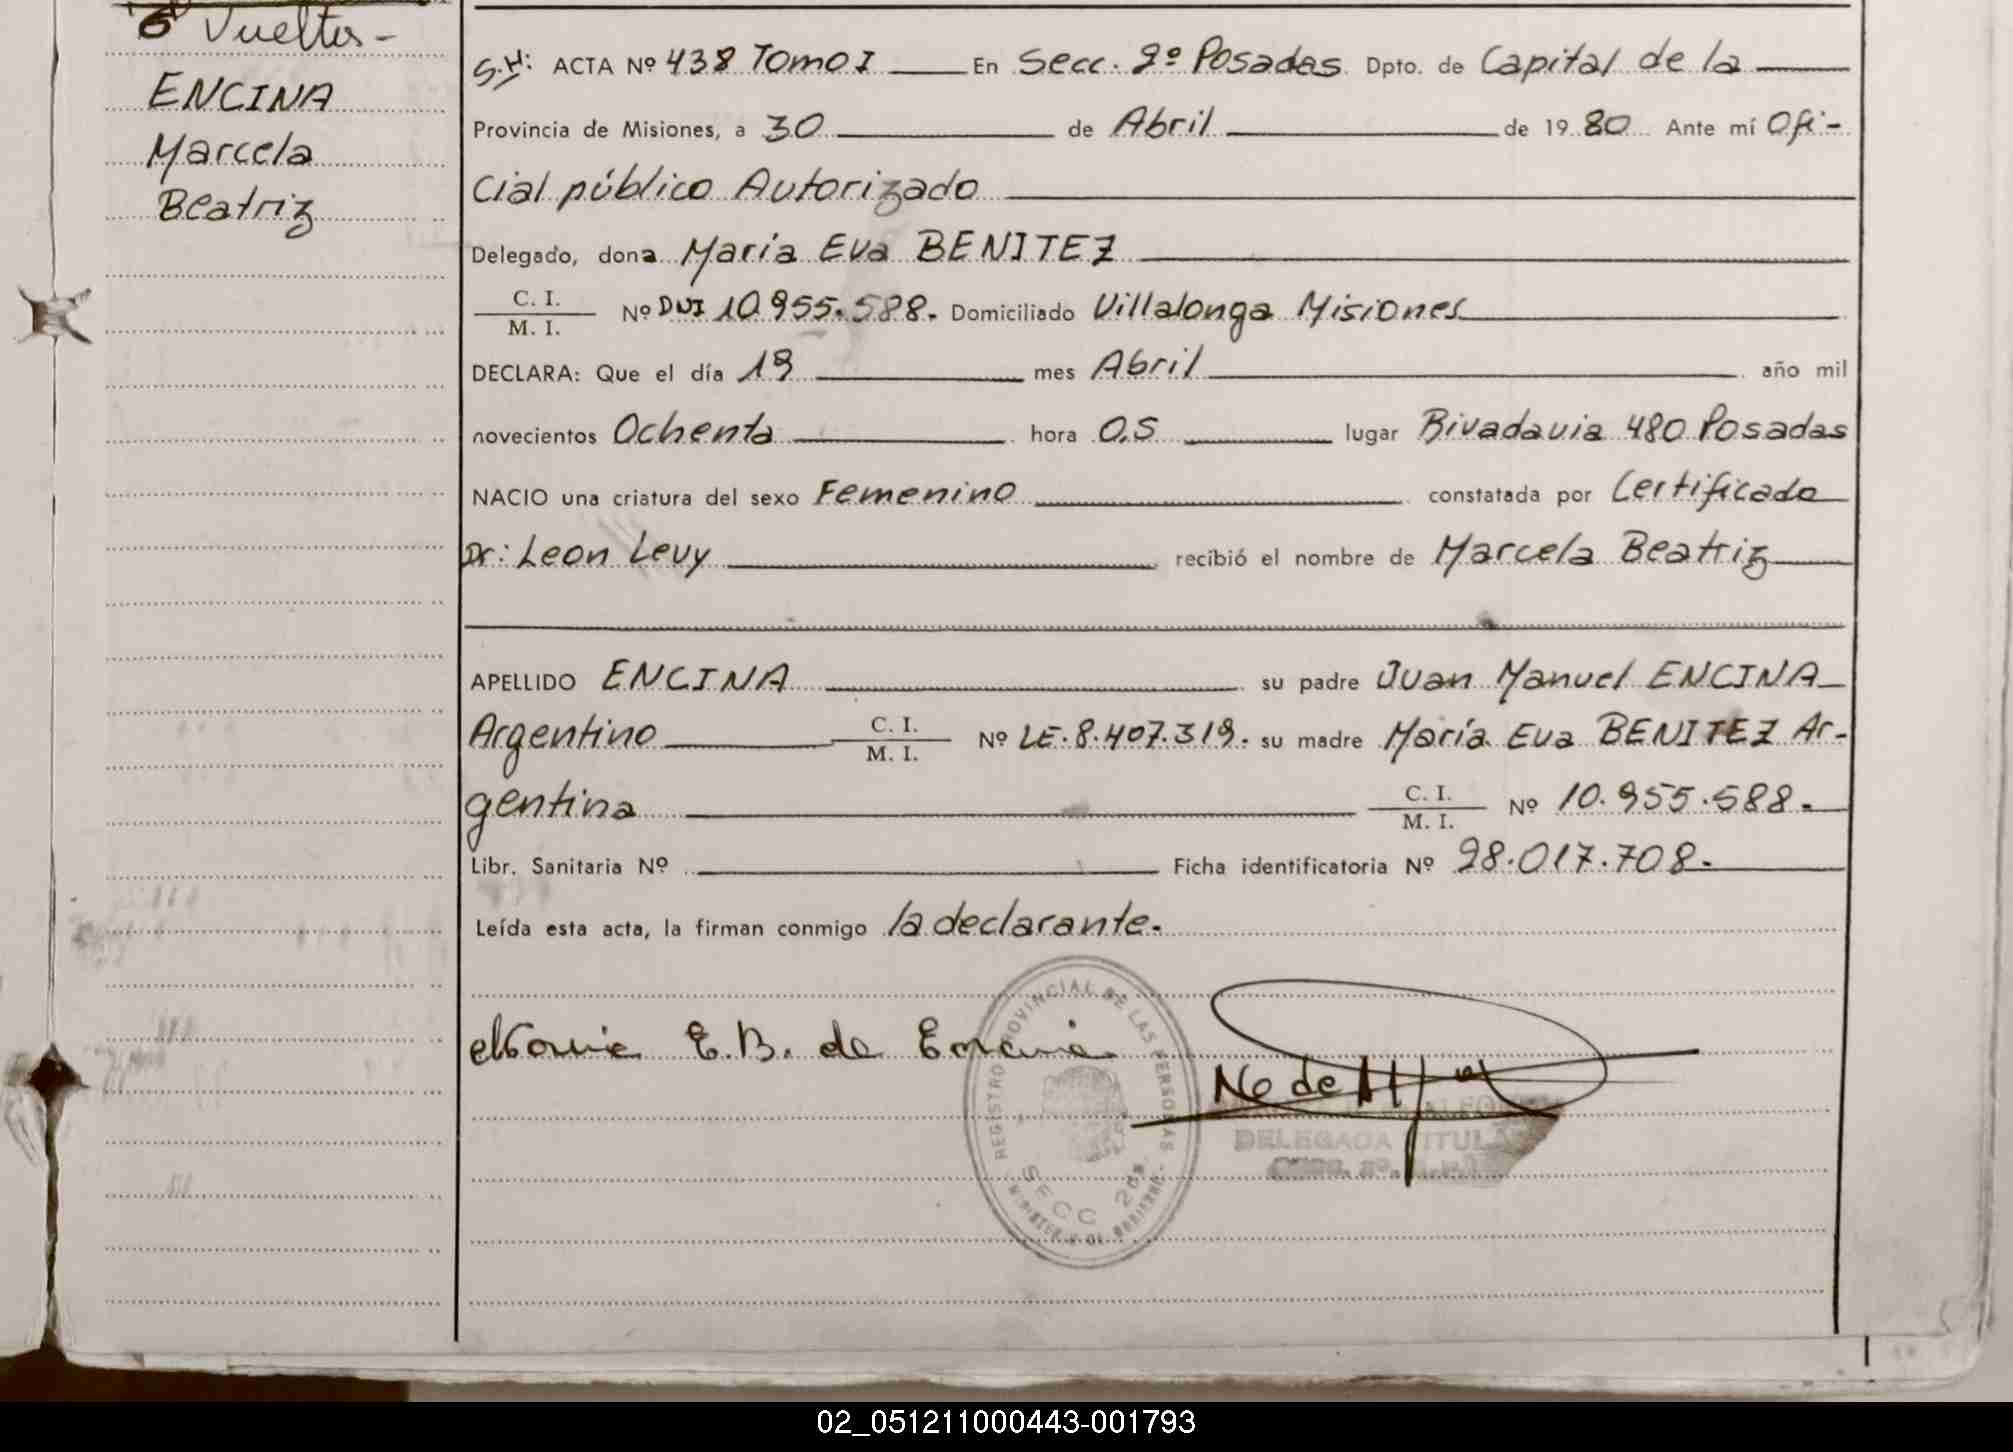 Vueltos-
ENCINA
Marcela
Beatriz
S.H: ACTA Nº 438 Tomo I En Secc. 2º Posadas Dpto. de Capital de la
Provincia de Misiones, a 30 de Abril de 1980 Ante mí Ofi-
cial público Autorizado
Delegado, dona María Eva BENITEZ
C. I.
M. I. Nº DNI 10.955.588. Domiciliado Villalonga Misiones
DECLARA: Que el día 19 mes Abril año mil
novecientos Ochenta hora 0,5 lugar Rivadavia 480 Posadas
NACIO una criatura del sexo Femenino constatada por Certificado
Dr: Leon Levy recibió el nombre de Marcela Beatriz
APELLIDO ENCINA su padre Juan Manuel ENCINA
Argentino C. I.
M. I. Nº LE.8.407.319. su madre María Eva BENITEZ Ar-
gentina C. I.
M. I. Nº 10.955.588.
Libr. Sanitaria Nº Ficha identificatoria Nº 28.017.708.
Leída esta acta, la firman conmigo la declarante.
E.B. de Encina
REGISTRO PROVINCIAL DE LAS PERSONAS
SECC 2da
MINISTERIO DE GOBIERNO
DELEGADA TITULAR
02_051211000443-001793